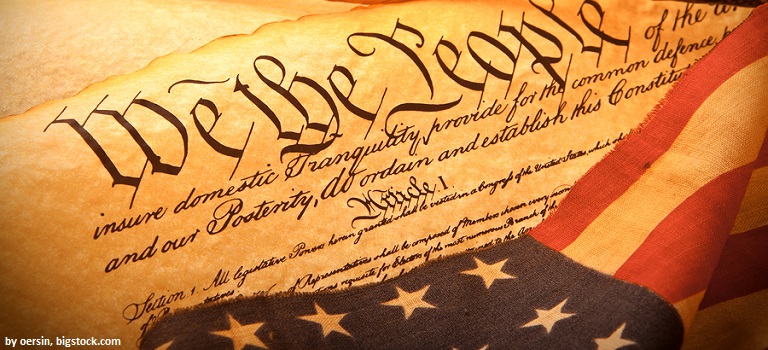 We the People of the
insure domestic Tranquility, provide for the common defence,
and our Posterity, do ordain and establish this Constitu
Article. I.
Section 1. All legislative Powers herein granted shall be vested in a Congress of the United States, which
of Representatives.
of Representatives shall be composed of Members chosen every
requisite for Electors of the most numerous Branch of the
by oersin, bigstock.com